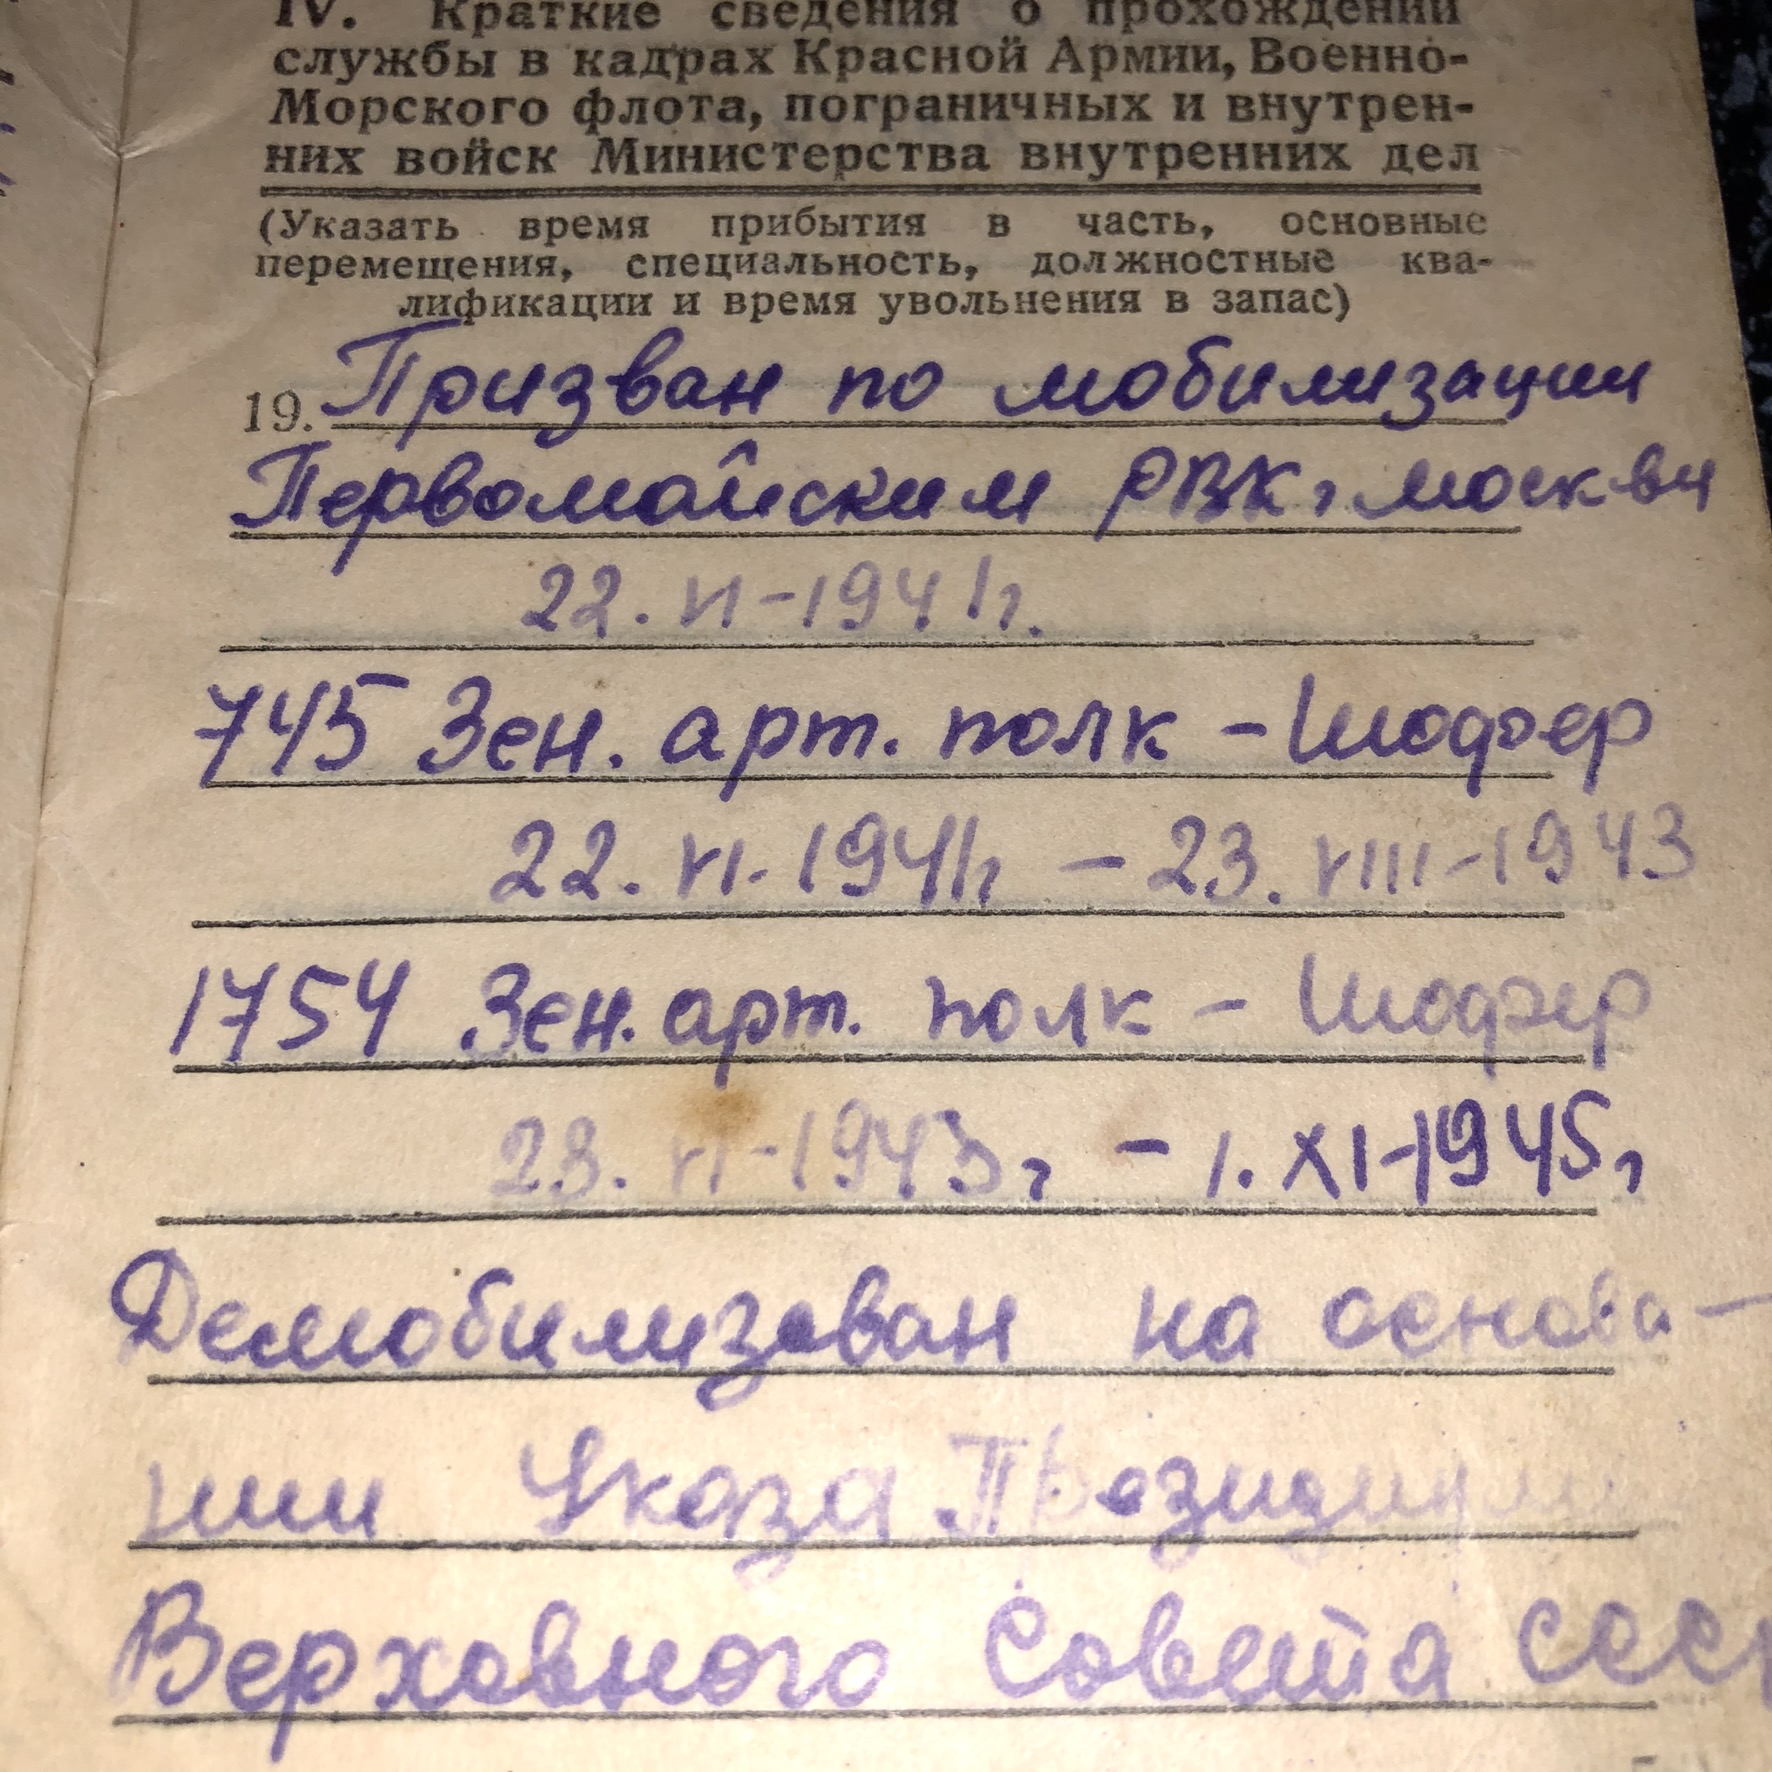 IV. Краткие сведения о прохождении
службы в кадрах Красной Армии, Военно-
Морского флота, пограничных и внутрен-
них войск Министерства внутренних дел
(Указать время прибытия в часть, основные
перемещения, специальность, должностные ква-
лификации и время увольнения в запас)
19. Призван по мобилизации
Первомайским РВК г. Москвы
22. VI - 1941 г.
745 Зен. арт. полк - Шофер
22. VI. 1941 г - 23. VIII - 1943
1754 Зен. арт. полк - Шофер
23. VI - 1943 г - 1. XI - 1945 г
Демобилизован на основа-
нии Указа Президиума
Верховного Совета ССС